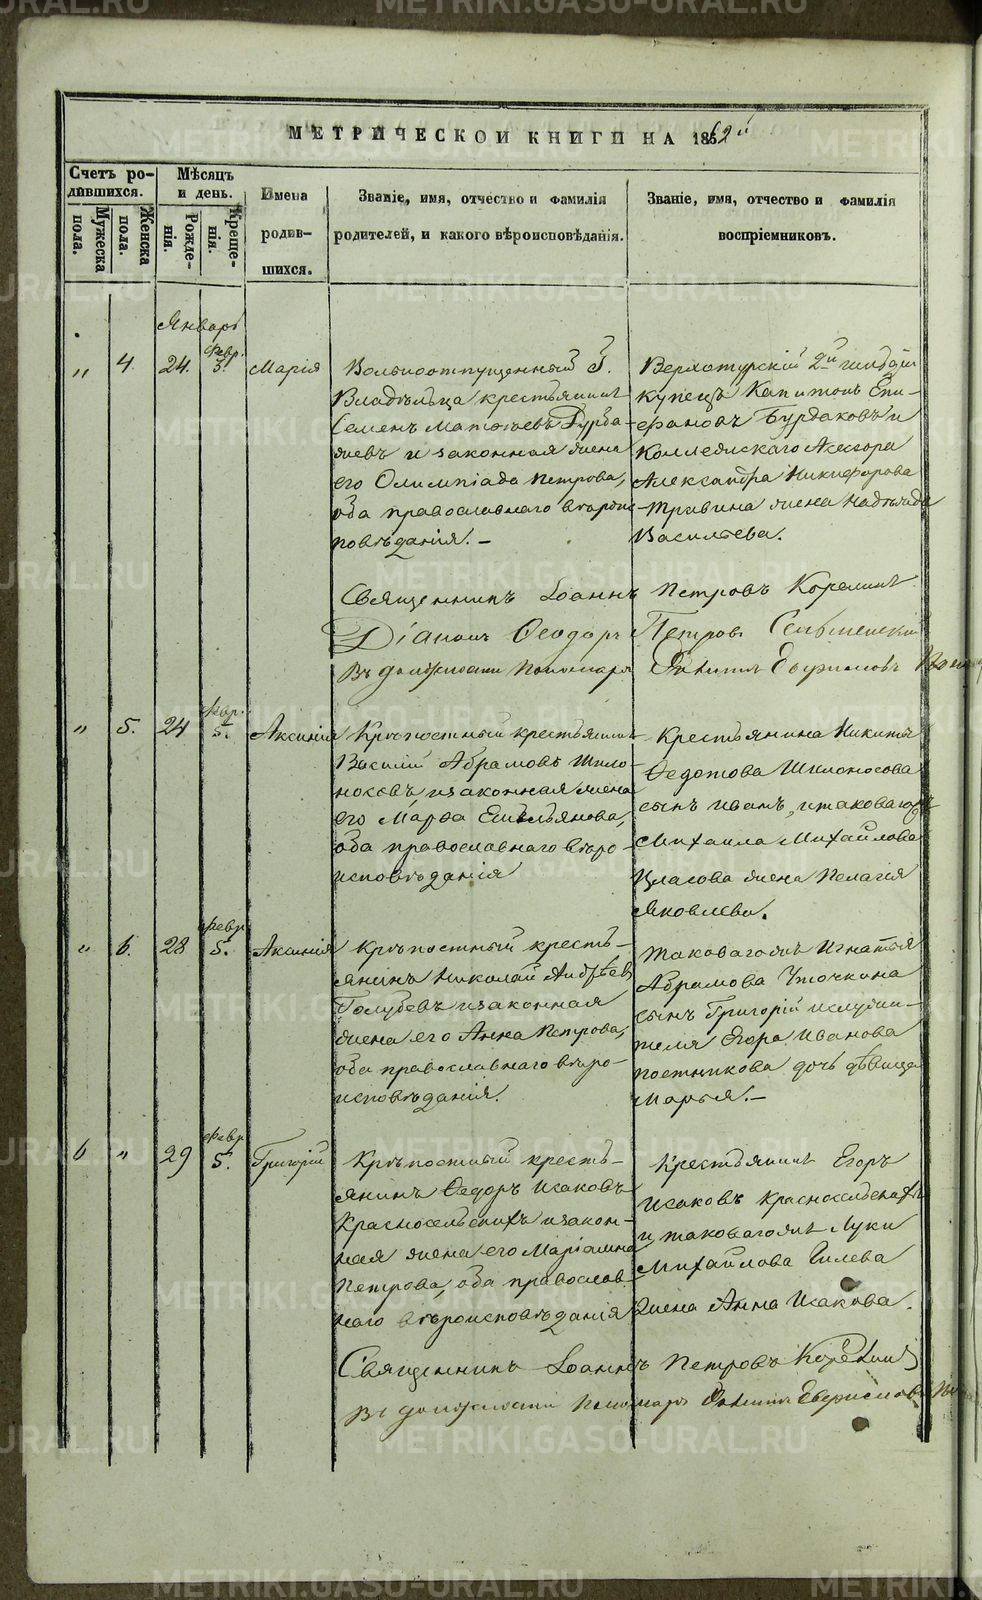 МЕТРИЧЕСКОЙ КНИГИ НА 1862й
Счетъ родившихся.
Мѣсяцъ и день.
Имена родившихся.
Званіе, имя, отчество и фамилія родителей, и какого вѣроисповѣданія.
Званіе, имя, отчество и фамилія воспріемниковъ.
Мужеска пола.
Женска пола.
Рожденія.
Крещенія.
Январь
„ 4. 24. Февр. 5. Марія
Вольноотпущенный Г.
Владѣльца крестьянинъ
Семенъ Матвѣевъ
и законная жена
его Олимпіада Петрова,
оба православнаго вѣроис-
повѣданія.-
Верхотурскій 2й гильдіи
купецъ Капитонъ Епи-
фановъ Бурдаковъ и
Коллежскаго Асессора
Александра Никифорова
жена Надежда
Васильева.
Священникъ Іоаннъ Петровъ
Діаконъ Ѳеодоръ Петровъ
Въ должности Пономаря
„ 5. 24 Февр. 5. Аксинія
Крѣпостный крестьянинъ
Василій Абрамовъ Шило-
носовъ и законная жена
его Марѳа Емельянова,
оба православнаго вѣро-
исповѣданія
Крестьянина Никиты
Ѳедотова Шилоносова
сынъ Иванъ, и таковаго жъ
Михаила Михайлова
Власова жена Пелагія
Яковлева.
„ 6. 28 Февр 5. Аксинія
Крѣпостный кресть-
янинъ Николай Андреевъ
Голубевъ и законная
жена его Анна Петрова,
оба православнаго вѣро-
исповѣданія.
Таковаго жъ Игнатья
Абрамова Уточкина
сынъ Григорій и служи-
теля Егора Иванова
Постникова дочь дѣвица
Марья.-
6 „ 29 Февр 5. Григорій
Крѣпостный кресть-
янинъ Ѳедоръ Исаковъ
Красносельскихъ и закон-
ная жена его Маріамна
Петрова, оба православ-
наго вѣроисповѣданія
Крестьянинъ Егоръ
Исаковъ Красносельскихъ
и таковаго жъ Луки
Михайлова Гилева
жена Анна Исакова.
Священникъ Іоаннъ Петровъ
Въ должности Пономаря
METRIKI.GASO-URAL.RU